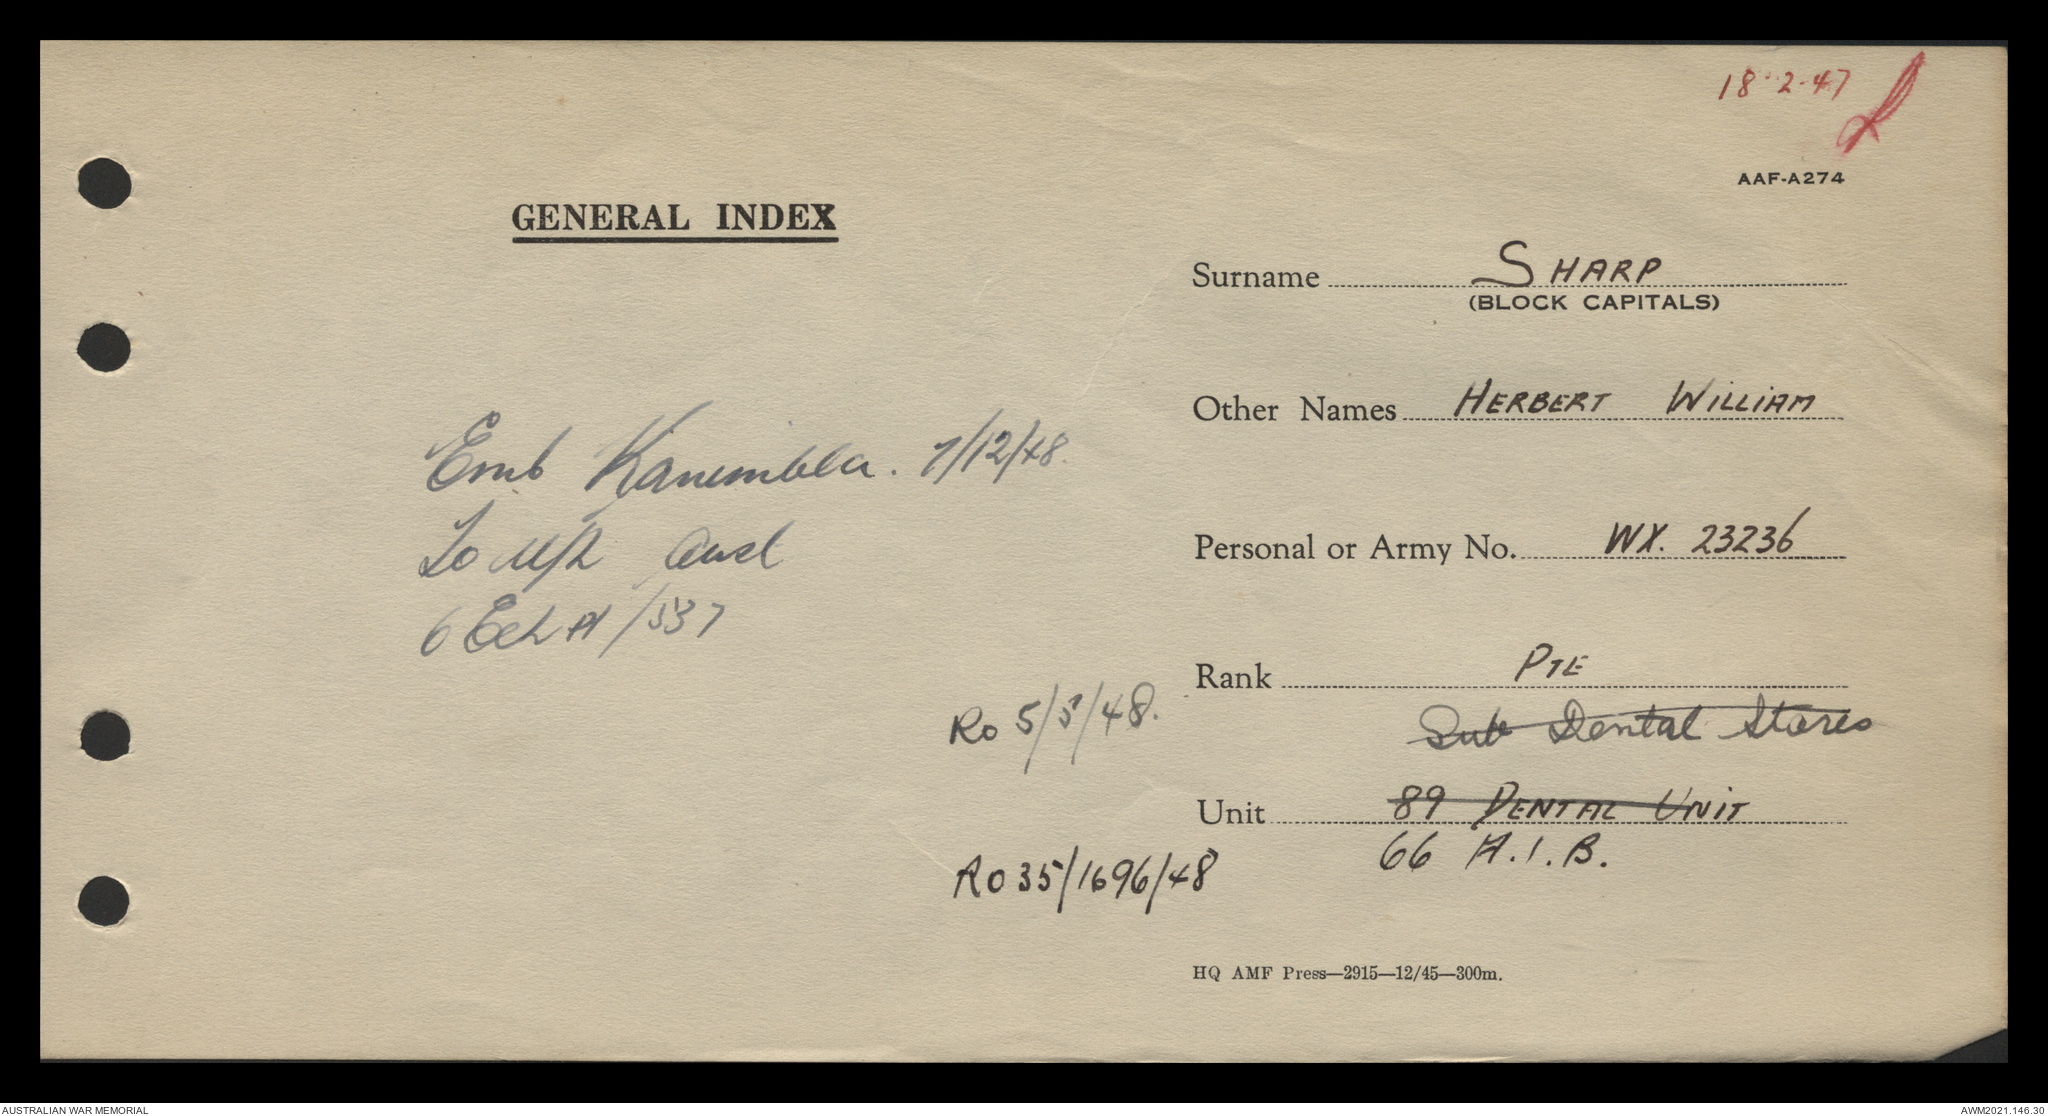 18-2-47
AAF-A274
GENERAL INDEX
Surname SHARP
(BLOCK CAPITALS)
Other Names HERBERT WILLIAM
Emb Kanimbla. 7/12/48.
Personal or Army No. WX. 23236
To Aust
6 Ech A/537
Rank PTE
Ro 5/5/48.
Sub Dental Stores
Unit 89 DENTAL UNIT
66 A.I.B.
Ro 35/1696/48
HQ AMF Press—2915—12/45—300m.
AUSTRALIAN WAR MEMORIAL
AWM2021.146.30